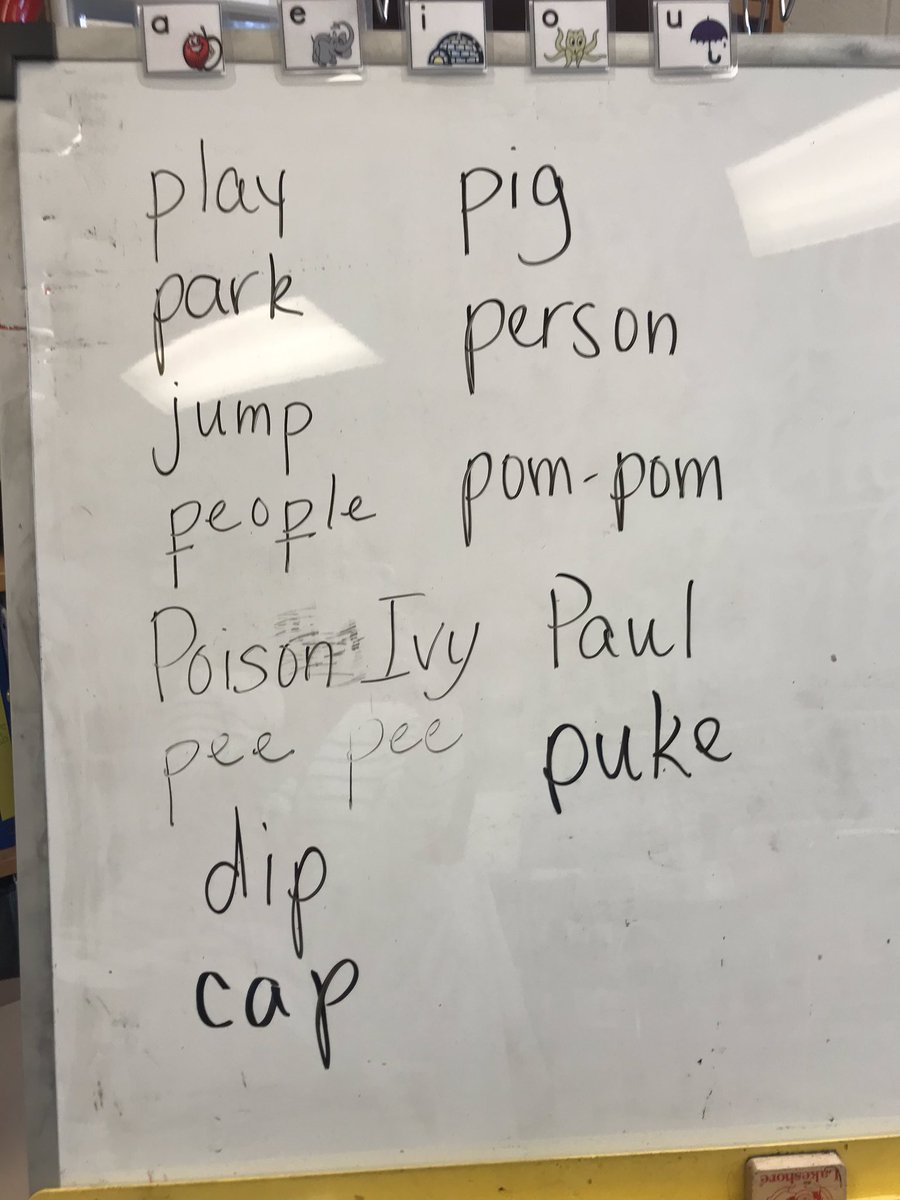 a
e
i
o
u
play
park
jump
people
Poison Ivy
pee pee
dip
cap
pig
person
pom-pom
Paul
puke
Lakeshore